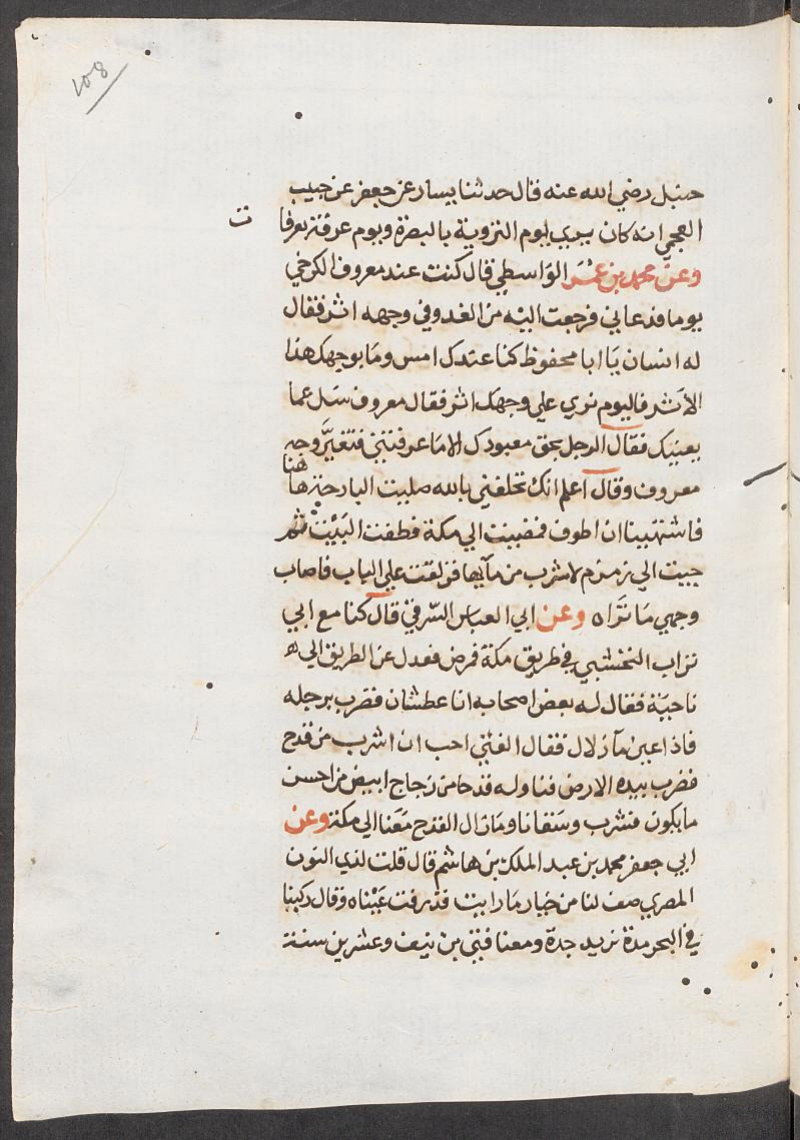 108
حنبل رضي الله عنه قال حدثنا يسار عن جعفر عن حبيب
العجمي انه كان يري يوم التروية بالبصرة ويوم عرفة بعرفا
ت
وعن محمد بن عمر الواسطي قال كنت عند معروف الكرخي
يوما فدعا بي فرجعت اليه من الغد وفي وجهه اثر فقال
له انسان يا ابا محفوظ كنا عندك امس وما بوجهك هذا
الأثر فاليوم نري علي وجهك اثر فقال معروف سل عما
يعنيك فقال الرجل بحق معبودك الا ما عرفتني فتغير وجه
معروف وقال اعلم انك تحلفني بالله صليت البارحة هاهنا
فاشتهيينا ان اطوف فمضيت الي مكة فطفت البيت ثم
جيت الي زمزم لاشرب من مآيها فزلقت علي الباب فاصاب
وجهي ما تراه وعن ابي العباس الشرفي قال كنا مع ابي
تراب النخشبي في طريق مكة فمرض فعدل عن الطريق الي
ناحية فقال له بعض اصحابه انا عطشان فضرب برجله
فاذا عين مآ زلال فقال الفتي احب ان اشرب من قدح
فضرب بيده الارض فناوله قدحا من زجاج ابيض من احسن
ما يكون فشرب وسقانا وما زال القدح معنا الي مكة وعن
ابي جعفر محمد بن عبد الملك بن هاشم قال قلت لذي النون
المصري صف لنا من خيار ما رايت فذرفت عيناه وقال ركبنا
في البحر مدة نريد جدة ومعنا فتي بن نيف وعشرين سنة